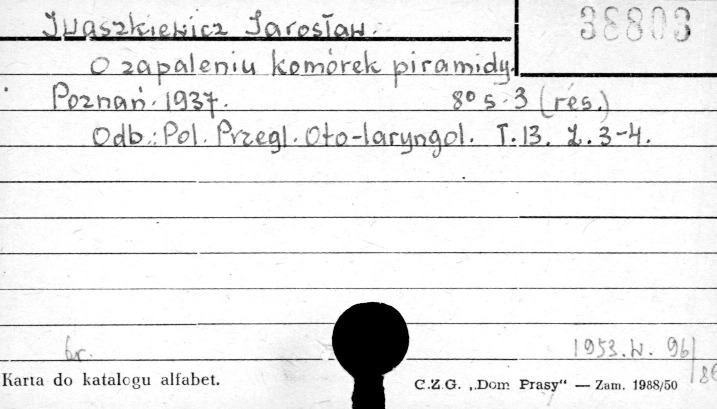 Iwaszkiewicz Jarosław.
38803
O zapaleniu komórek piramidy.
Poznań. 1937. 8° s. 3 (rés.)
Odb.: Pol. Przegl. Oto-laryngol. T. 13. Z. 3-4.
br.
1953. W. 96/86
Karta do katalogu alfabet.
C.Z.G. „Dom Prasy" — Zam. 1988/50